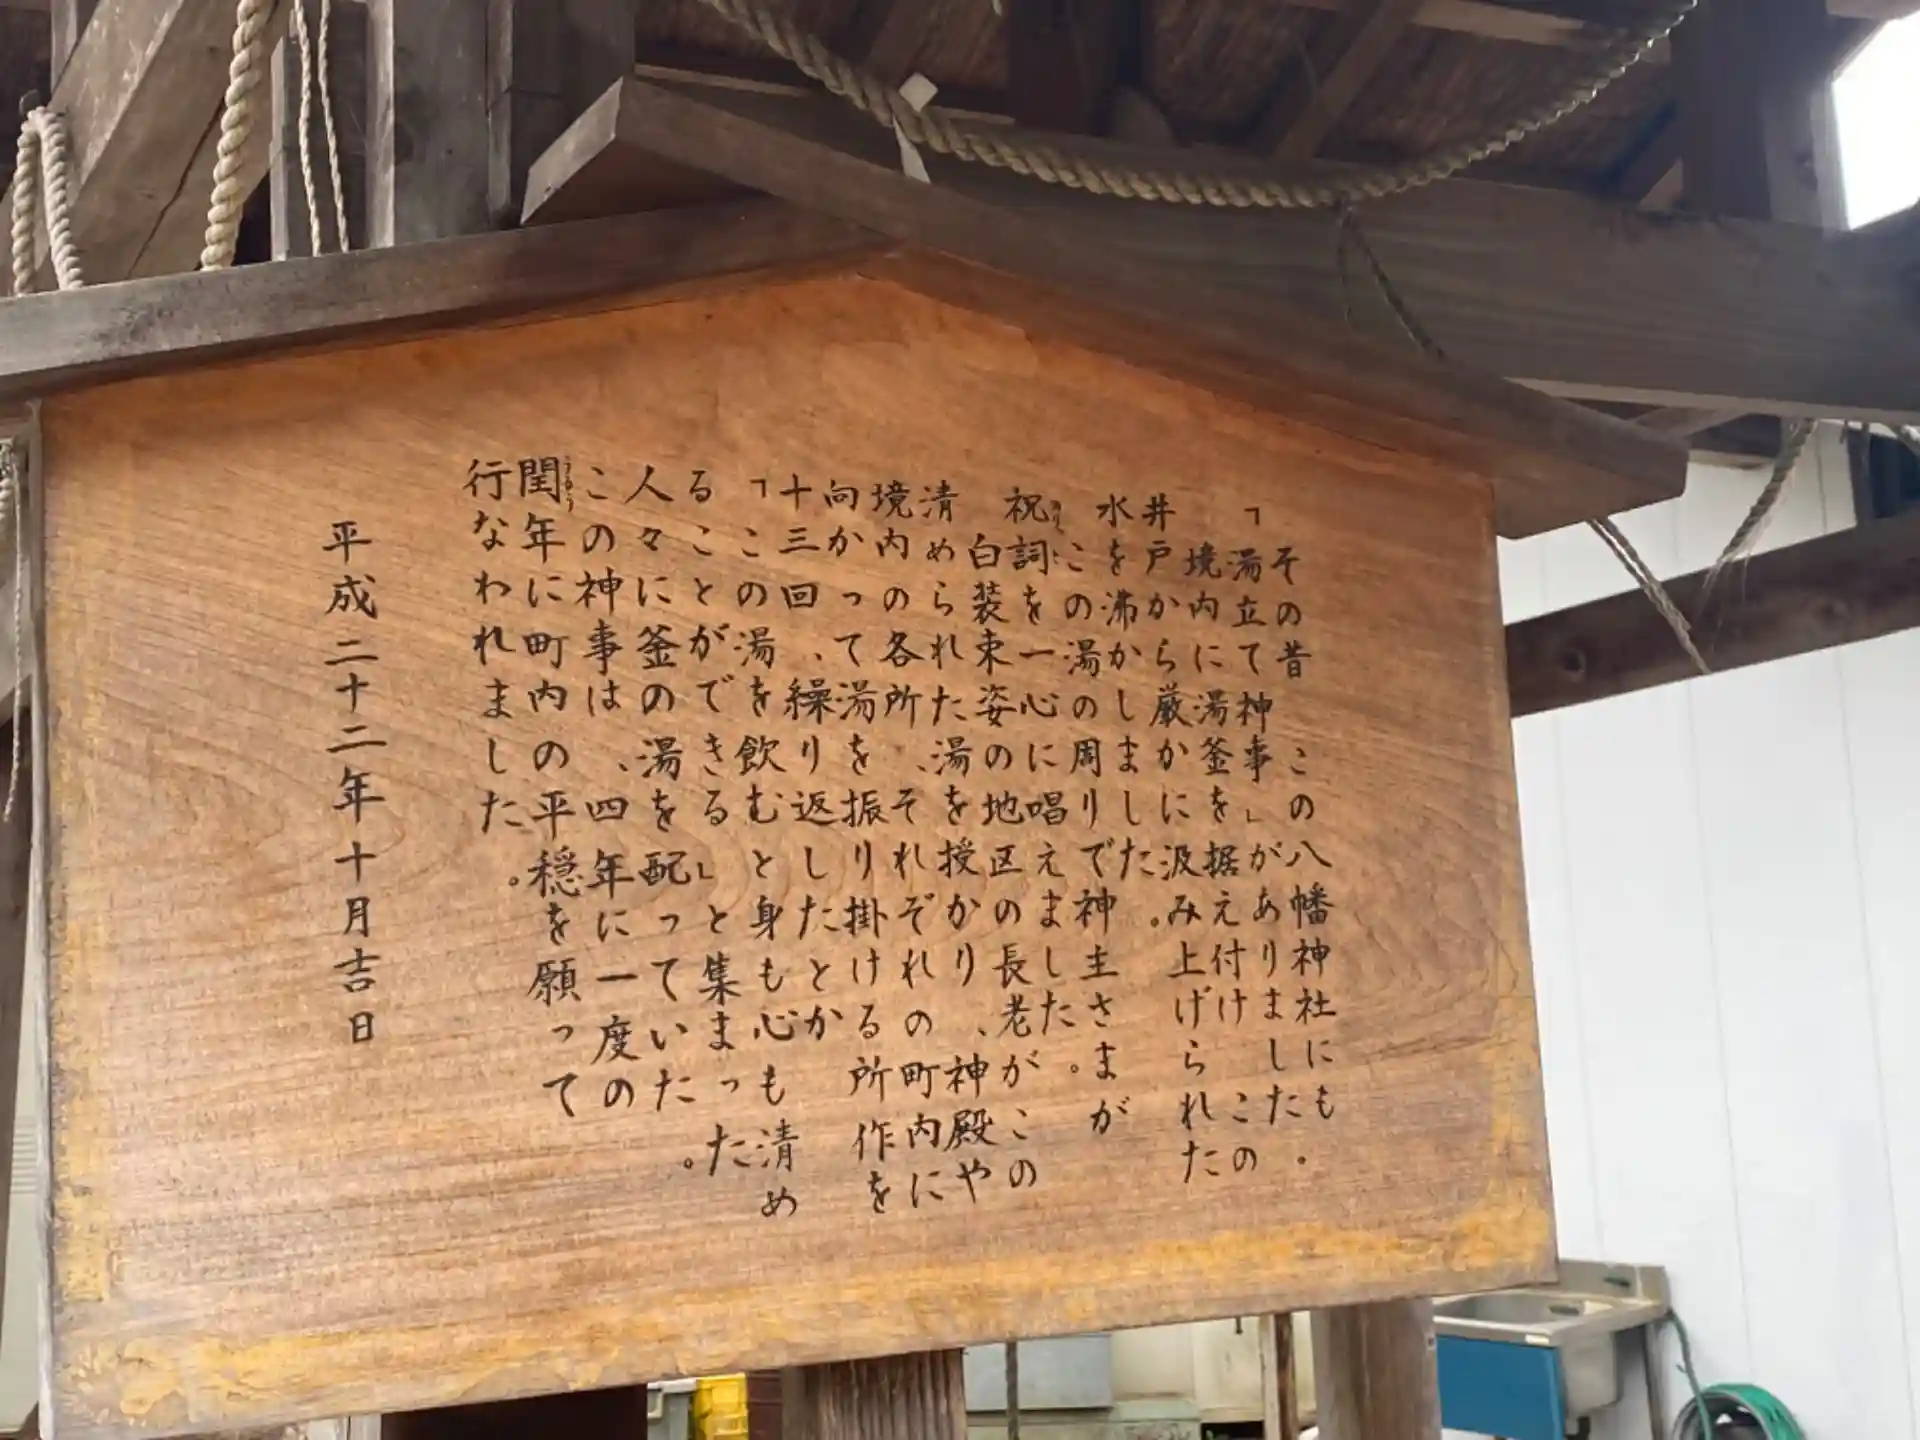 その昔　この八幡神社にも、
「湯立て神事」がありました。
境内に湯釜を据え付け　この
井戸から厳かに汲み上げられた
水を沸かしました。
この湯の周りで神主さまが
祝詞を一心に唱えました。
白装束姿の地区の長老が　この
清められた湯を授かり、神殿や
境内の各所、それぞれの町内に
向かって湯を振り掛ける所作を
十三回、繰り返したとか
「この湯を飲むと身も心も清め
ることができる」と集まった
人々に釜の湯を配っていた。
この神事は、四年に一度の
閏年に町内の平穏を願って
行なわれました。
平成二十二年十月吉日